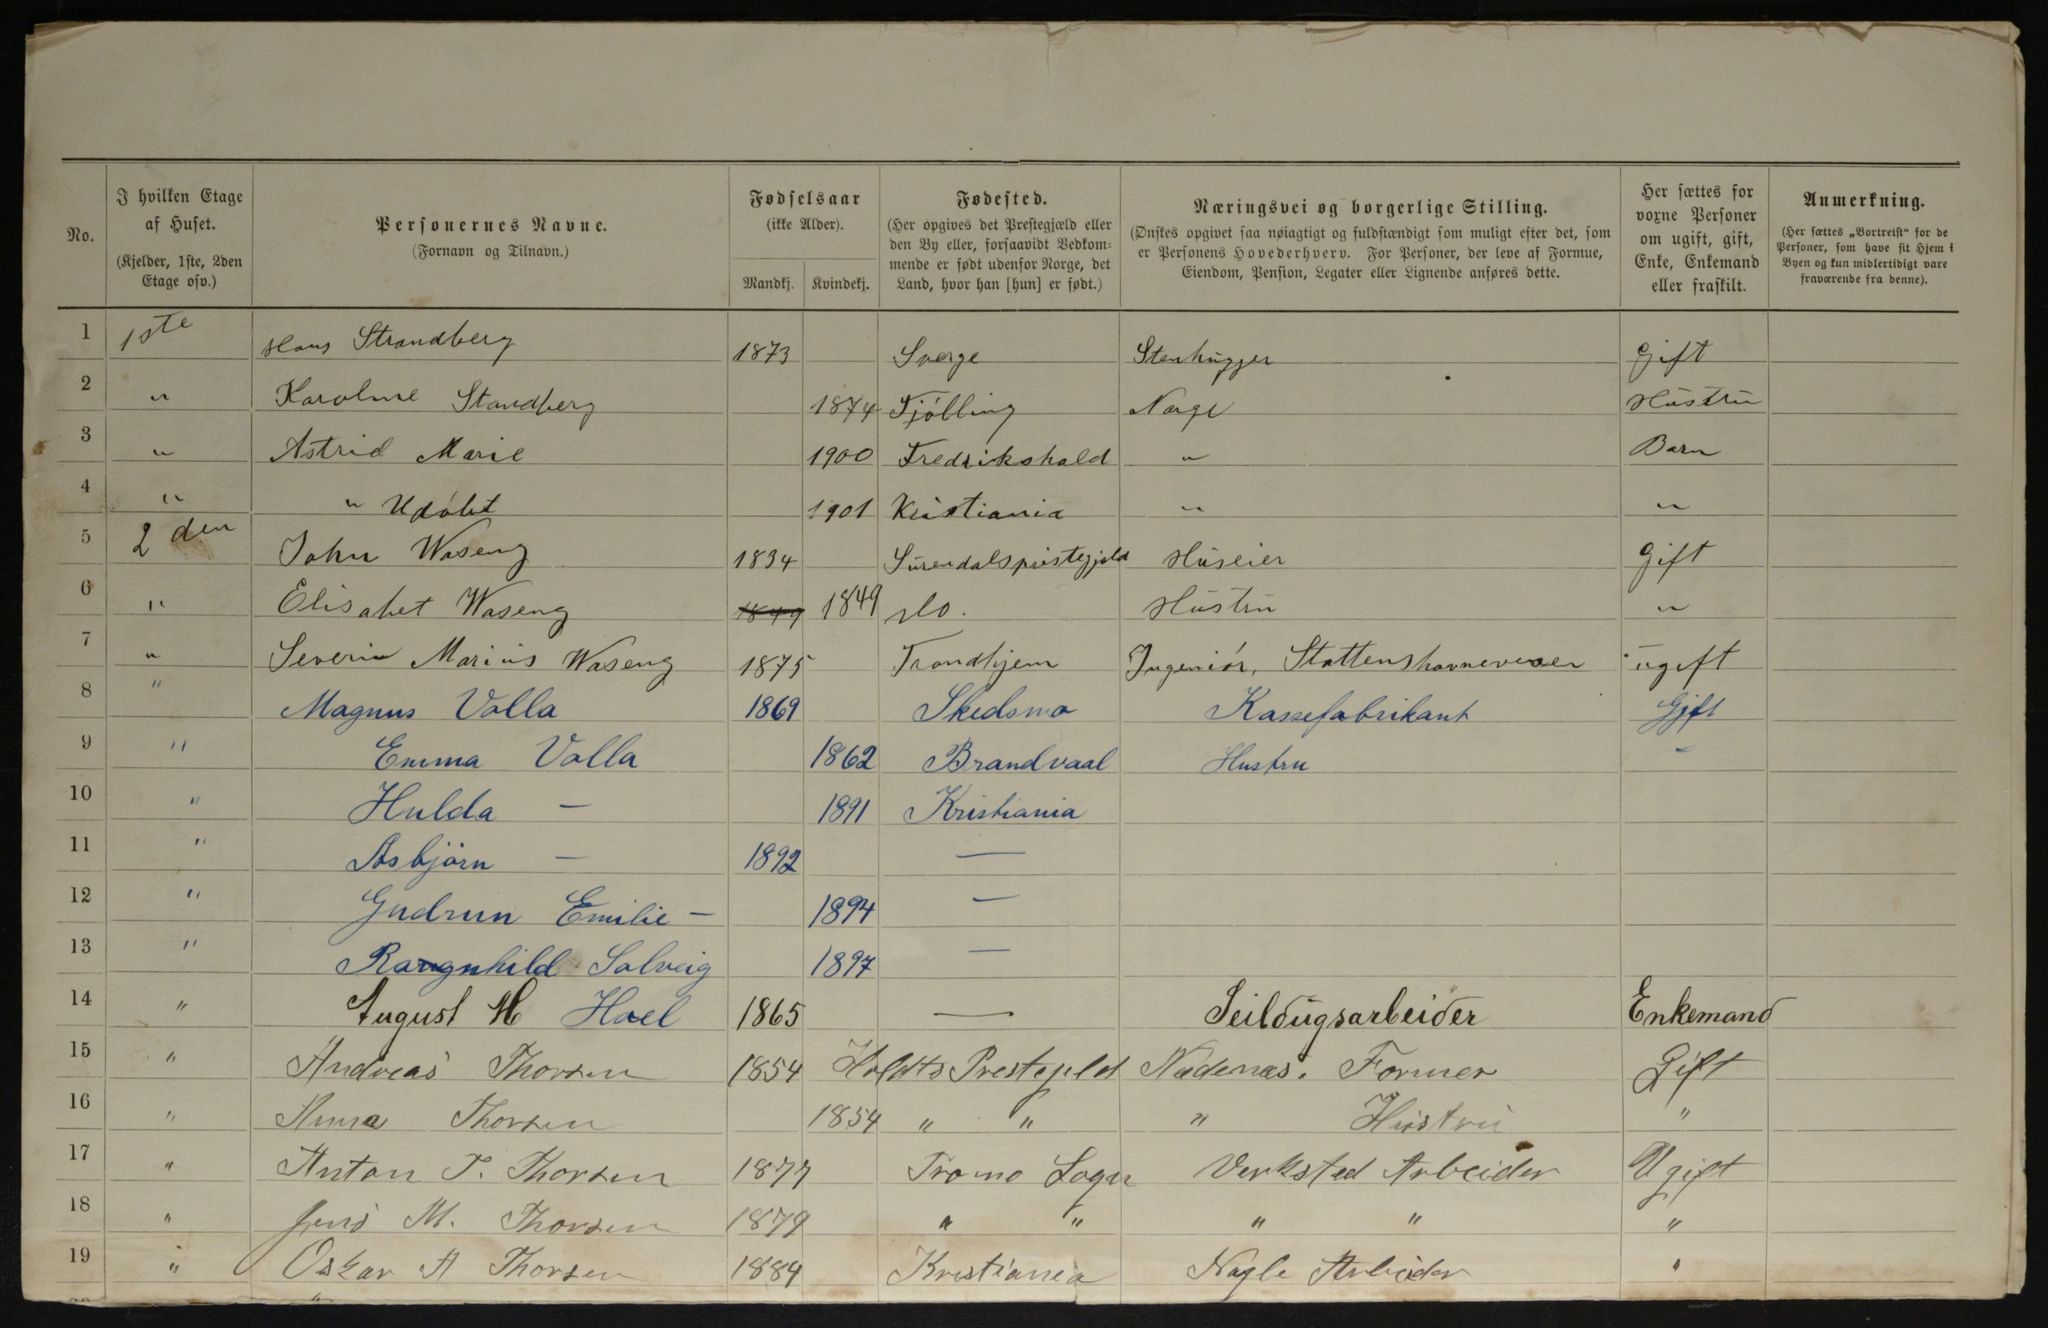 No. | I hvilken Etage af Huset. (Kjelder, 1ste, 2den Etage osv.) | Personernes Navne. (Fornavn og Tilnavn.) | Fødselsaar (ikke Alder). Mandkj. | Kvindekj. | Fødested. (Her opgives det Prestegjæld eller den By eller, forsaavidt Vedkommende er født udenfor Norge, det Land, hvor han [hun] er født.) | Næringsvei og borgerlige Stilling. (Ønskes opgivet saa nøiagtigt og fuldstændigt som muligt efter det, som er Personens Hovederhverv. For Personer, der leve af Formue, Eiendom, Pension, Legater eller Lignende anføres dette. | Her sættes for voxne Personer om ugift, gift, Enke, Enkemand eller fraskilt. | Anmerkning. (Her sættes „Bortreist“ for de Personer, som have sit Hjem i Byen og kun midlertidigt vare fraværende fra denne).
1 | 1ste | Hans Strandberg | 1873 | | Sverge | Stenhugger | Gift
2 | " | Karoline Standberg | | 1874 | Tjölling | Norge | Hustru
3 | " | Astrid Marie | | 1900 | Fredrikshald | " | Barn
4 | " | " Udöbt | | 1901 | Kristiania | " | "
5 | 2den | John Waseng | 1834 | | Surendalspristegjeld | Huseier | Gift
6 | " | Elisabet Waseng | 1849 | 1849 | do. | Hustru | "
7 | " | Severin Marius Waseng | 1875 | | Trondhjem | Ingeniör, Stattenshavnevesen | ugift
8 | " | Magnus Volla | 1869 | | Skedsmo | Kassefabrikant | Gift
9 | " | Emma Volla | | 1862 | Brandvaal | Hustru | –
10 | " | Hulda — | | 1891 | Kristiania
11 | " | Asbjörn — | 1892 | | —
12 | " | Gudrun Emilie — | | 1894 | —
13 | " | Rangnhild Solveig | | 1897 | —
14 | " | August M Hael | 1865 | | — | Seildugsarbeider | Enkemand
15 | " | Andreas Thorsen | 1854 | | Holdts Prestegjeld | Nedenæs. Former | Gift
16 | " | Anna Thorsen | | 1854 | " " | " Hustru | "
17 | " | Anton T. Thorsen | 1877 | | Tromo Logn | Verksted Arbeider | Ugift
18 | " | Jens M. Thorsen | 1879 | | " " | " " | "
19 | " | Oskar A Thorsen | 1884 | | Kristiania | Nagle Arbeider | "